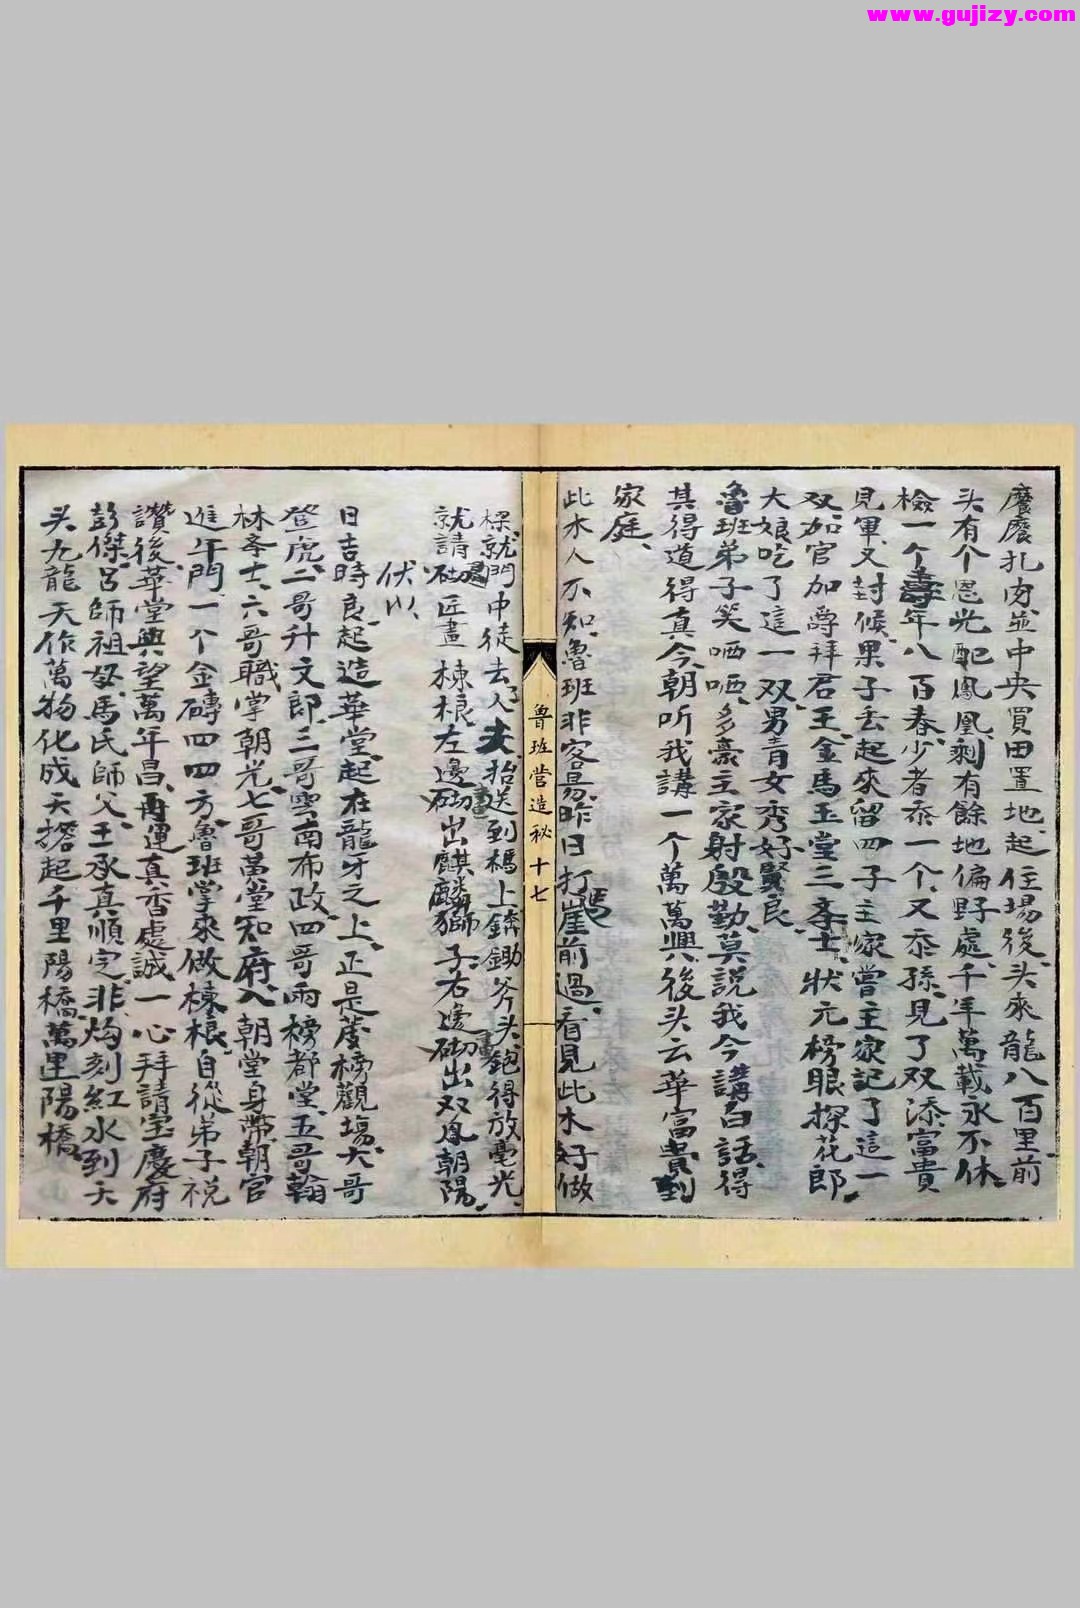 www.gujizy.com
麼麼扎內並中央買田置地起住場後头來龍八百里前
头有个恩光配鳳凰剩有餘地偏野處千年萬載永不休
檢一个壽年八百春少者添一个又添孫見了双添富貴
見軍又封候果子丢起來留四子主家嘗主家記了這一
双加官加爵拜君王金馬玉堂三李士狀元榜眼探花郎
大娘吃了這一双男青女秀好賢良
魯班弟子笑哂哂多豪主家射殷勤莫說我今講白話得
其得道得真今朝听我講一个萬萬興後头云華富貴到
家庭
此木人不知魯班非客易昨日打馬崖前過看見此木好做
魯班营造秘 十七
樑就門中徒去人夫抬送到榪上錛鋤斧头鉋得放毫光
就請砌匠畫棟樑左邊砌出麒麟獅子右邊砌出双鳳朝陽
伏以
日吉時良起造華堂起在龍牙之上正是黃榜觀塲大哥
登虎二哥升文郎三哥雲南布政四哥兩榜都堂五哥翰
林李士六哥職掌朝光七哥萬堂知府入朝堂身帶朝官
進午門一个金磚四四方魯班掌來做棟樑自從弟子祝
讚後華堂興望萬年昌再運真香處誠一心拜請宝慶府
彭傑呂師祖 馬氏師父王承真順定非灼刻紅水到天
头九龍天作萬物化成天搭起千里陽橋萬里陽橋